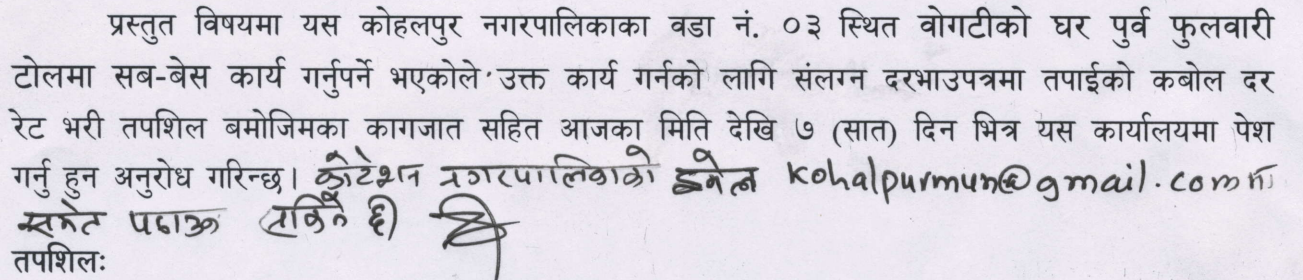 प्रस्तुत विषयमा यस कोहलपुर नगरपालिकाका वडा नं. ०३ स्थित वोगटीको घर पुर्व फुलवारी
टोलमा सब-बेस कार्य गर्नुपर्ने भएकोले उक्त कार्य गर्नको लागि संलग्न दरभाउपत्रमा तपाईको कबोल दर
रेट भरी तपशिल बमोजिमका कागजात सहित आजका मिति देखि ७ (सात) दिन भित्र यस कार्यालयमा पेश
गर्नु हुन अनुरोध गरिन्छ। कोटेशन नगरपालिकाको ईमेल kohalpurmun@gmail.com मा
समेत पठाउन सकिने छ।
तपशिलः